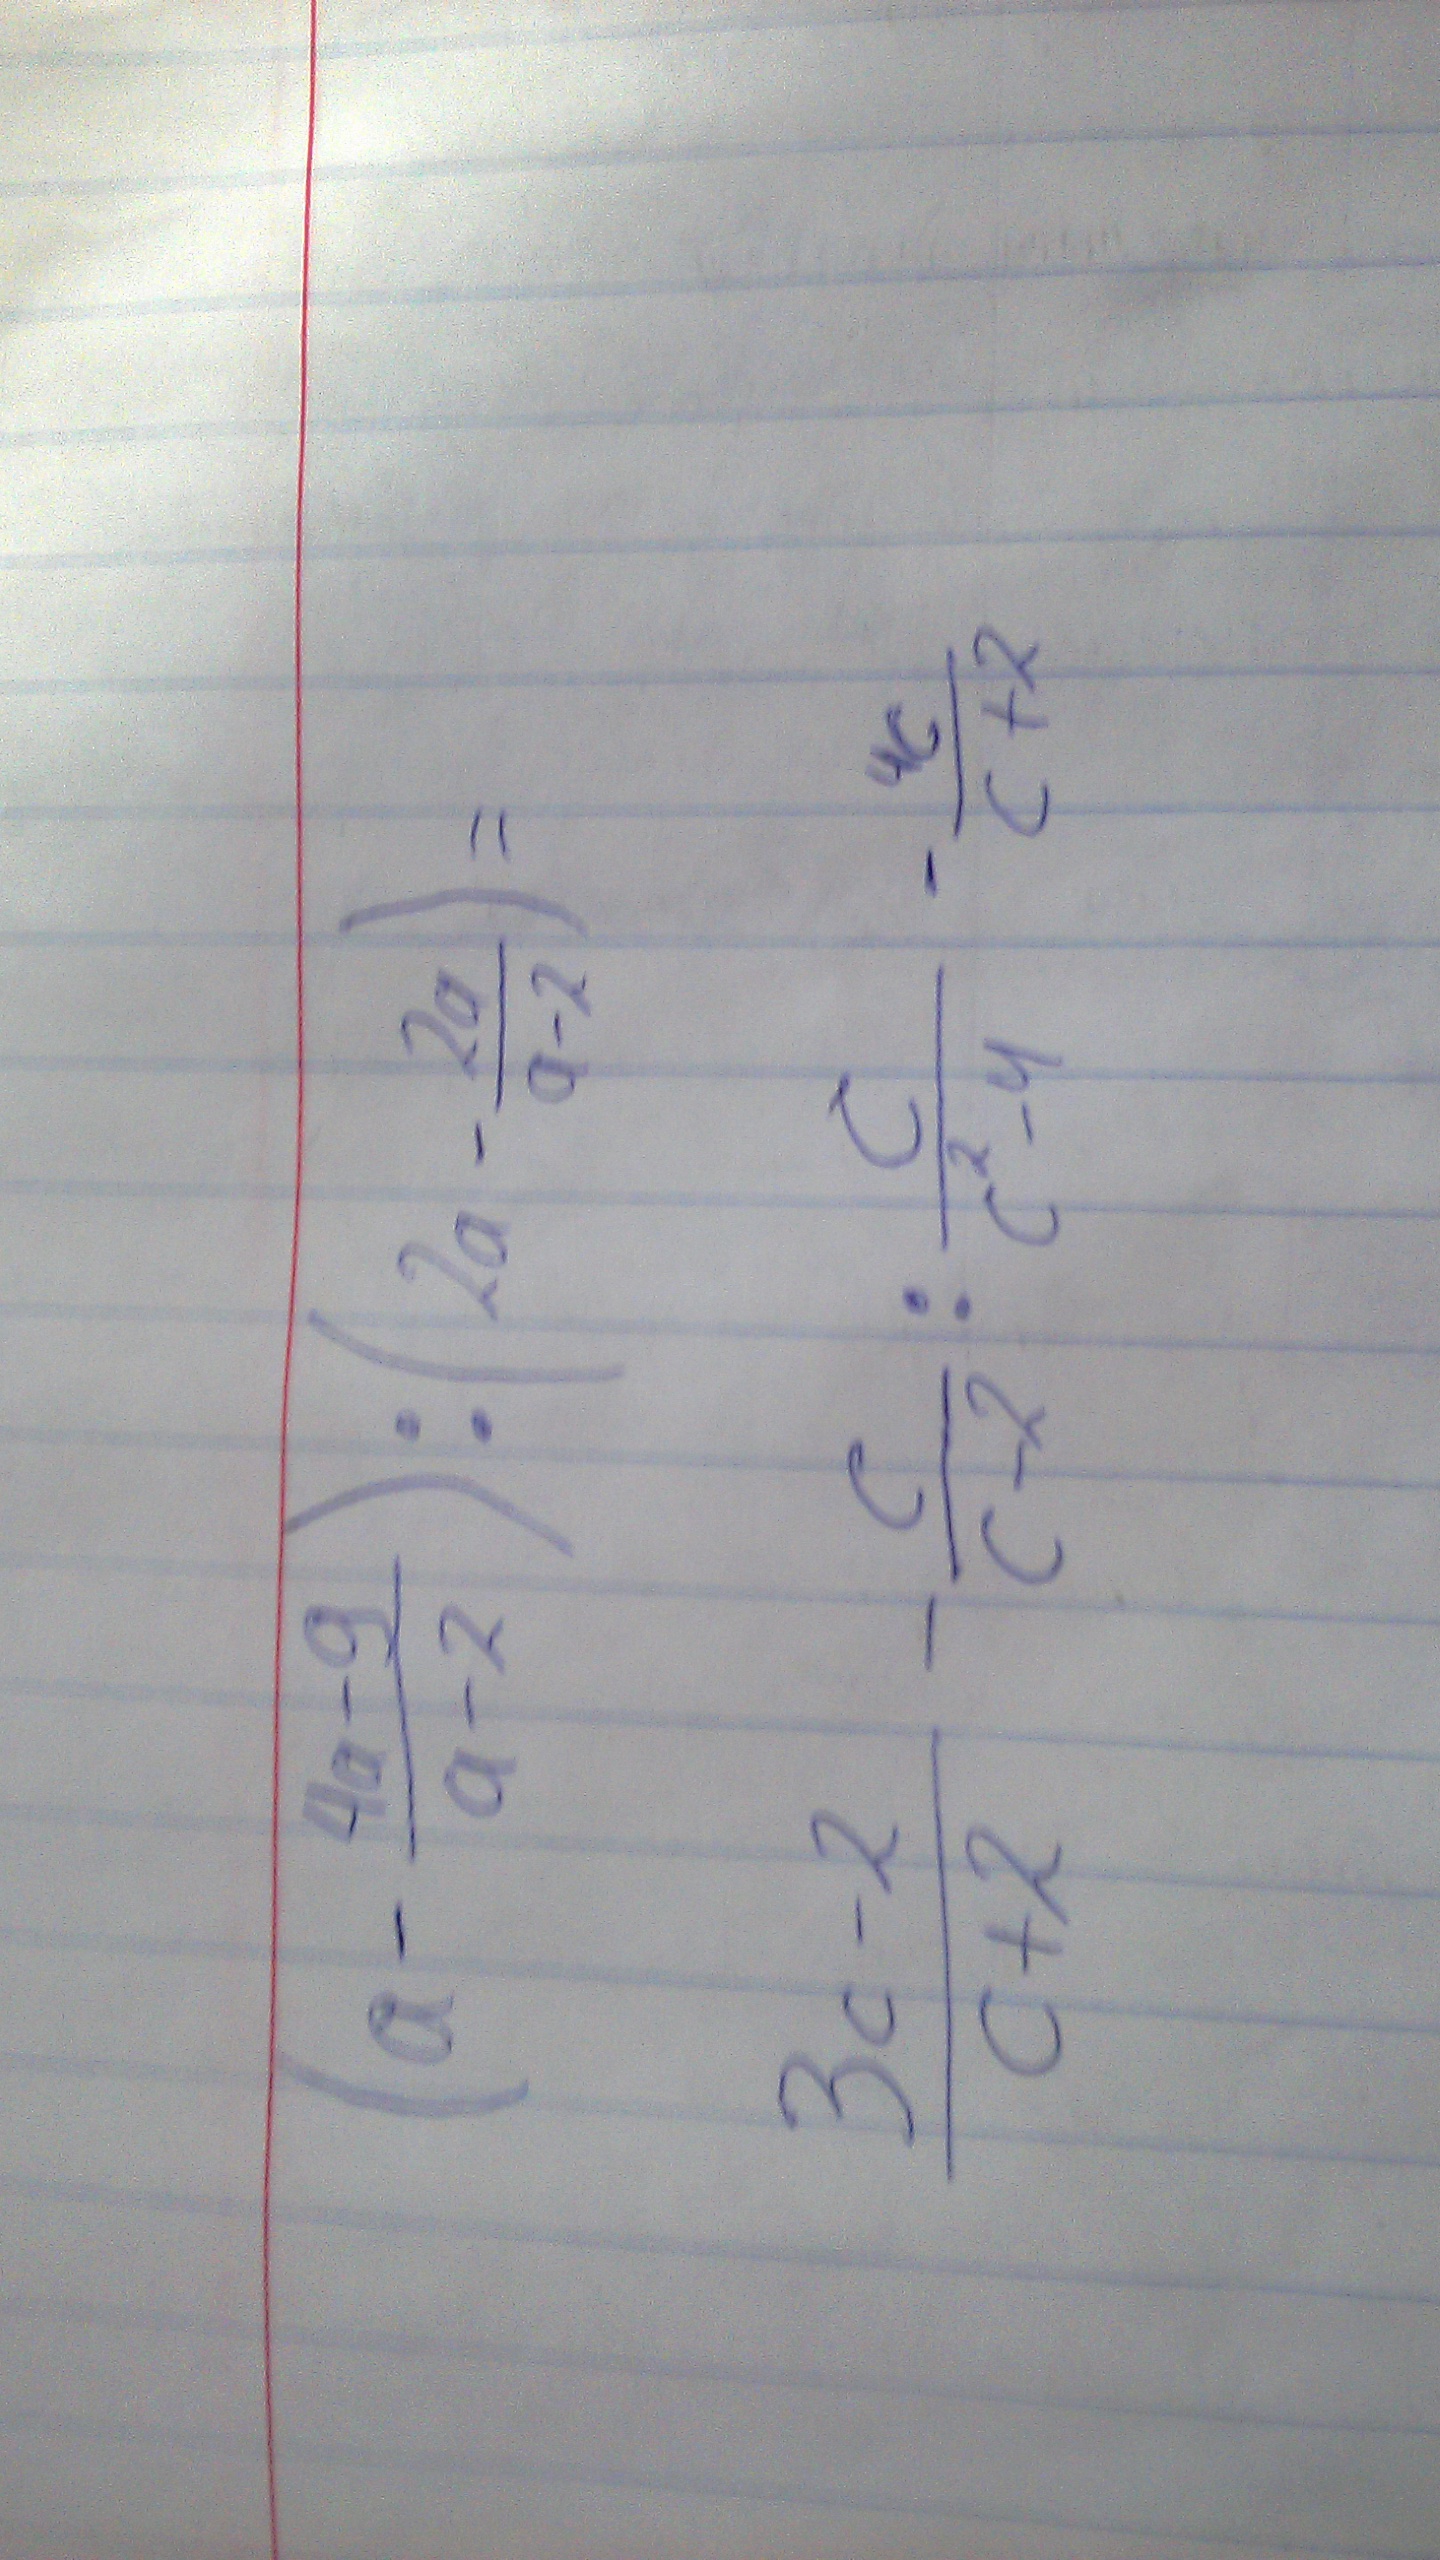 (a - \frac{4a-9}{a-2}) : (2a - \frac{2a}{a-2}) =
\frac{3c-2}{c+2} - \frac{c}{c-2} : \frac{c}{c^2-4} - \frac{4c}{c+2}